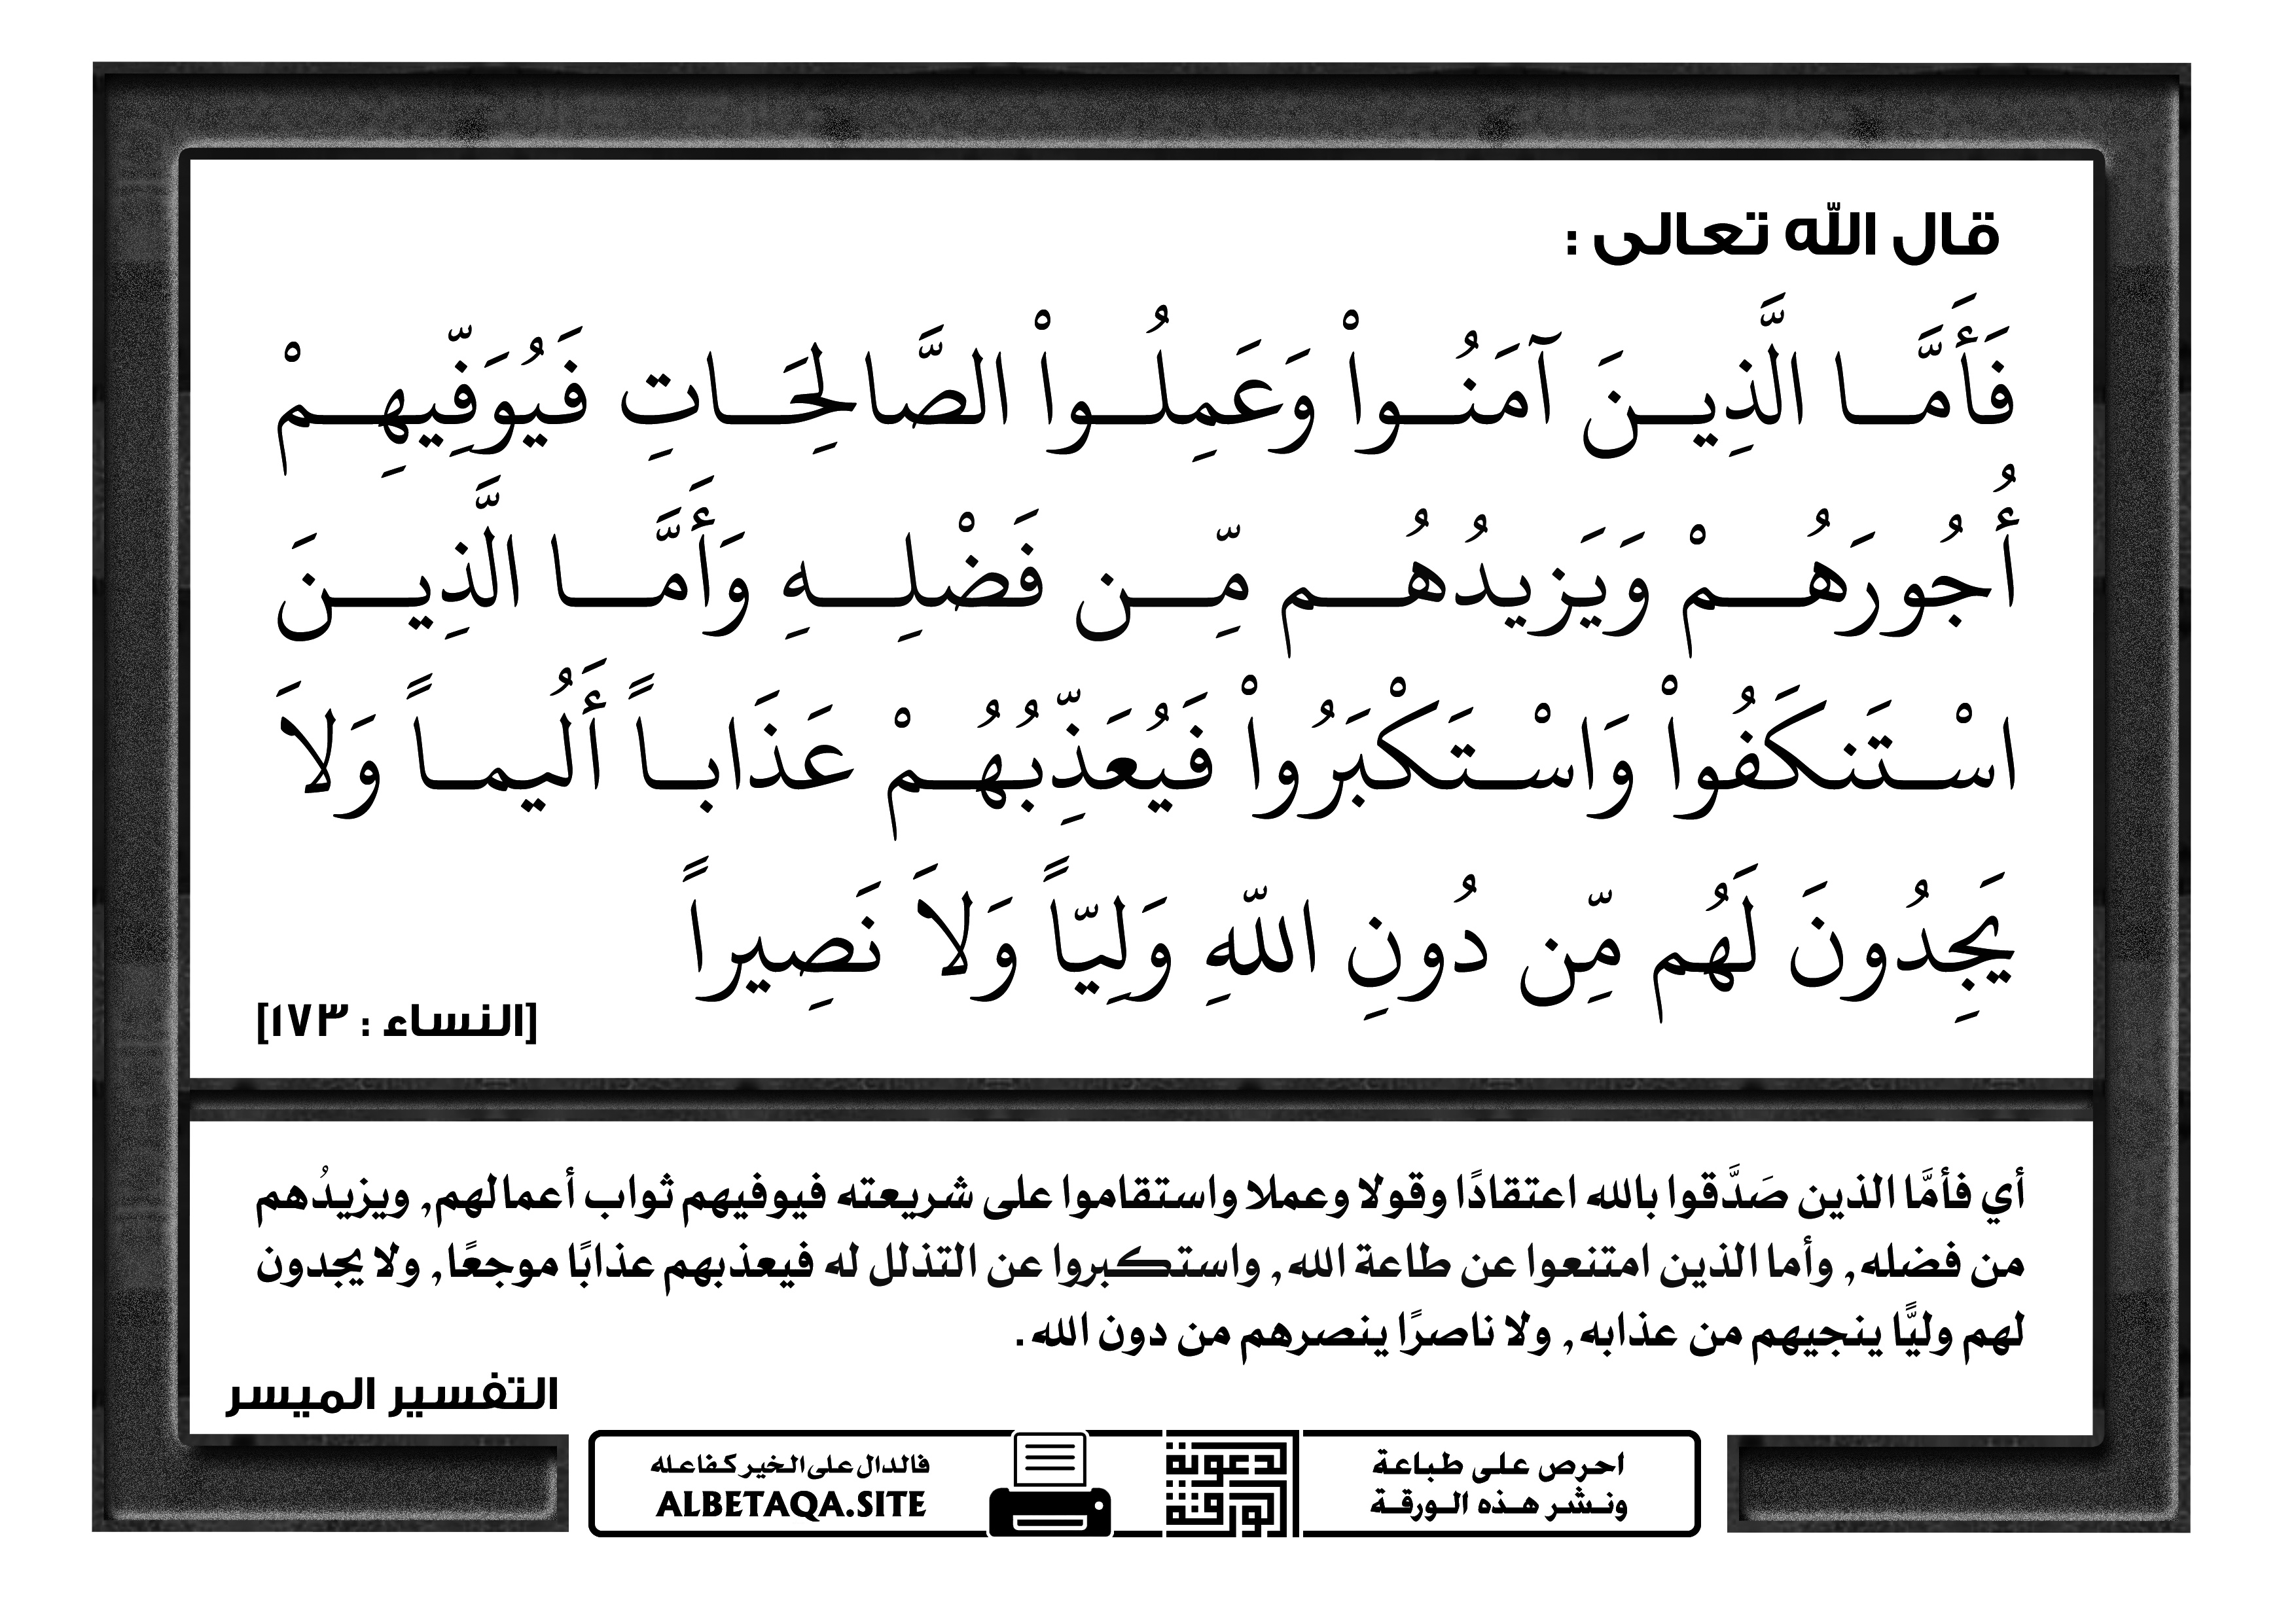 قال الله تعالى :
فَأَمَّا الَّذِينَ آمَنُواْ وَعَمِلُواْ الصَّالِحَاتِ فَيُوَفِّيهِمْ
أُجُورَهُمْ وَيَزِيدُهُم مِّن فَضْلِهِ وَأَمَّا الَّذِينَ
اسْتَنكَفُواْ وَاسْتَكْبَرُواْ فَيُعَذِّبُهُمْ عَذَاباً أَلُيماً وَلاَ
يَجِدُونَ لَهُم مِّن دُونِ اللّهِ وَلِيّاً وَلاَ نَصِيراً
[النساء : ١٧٣]
أي فأمَّا الذين صَدَّقوا بالله اعتقادًا وقولا وعملا واستقاموا على شريعته فيوفيهم ثواب أعمالهم, ويزيدُهم
من فضله, وأما الذين امتنعوا عن طاعة الله, واستكبروا عن التذلل له فيعذبهم عذابًا موجعًا, ولا يجدون
لهم وليًّا ينجيهم من عذابه, ولا ناصرًا ينصرهم من دون الله.
التفسير الميسر
احرص على طباعة
ونشر هذه الورقة
فالدال على الخير كفاعله
ALBETAQA.SITE